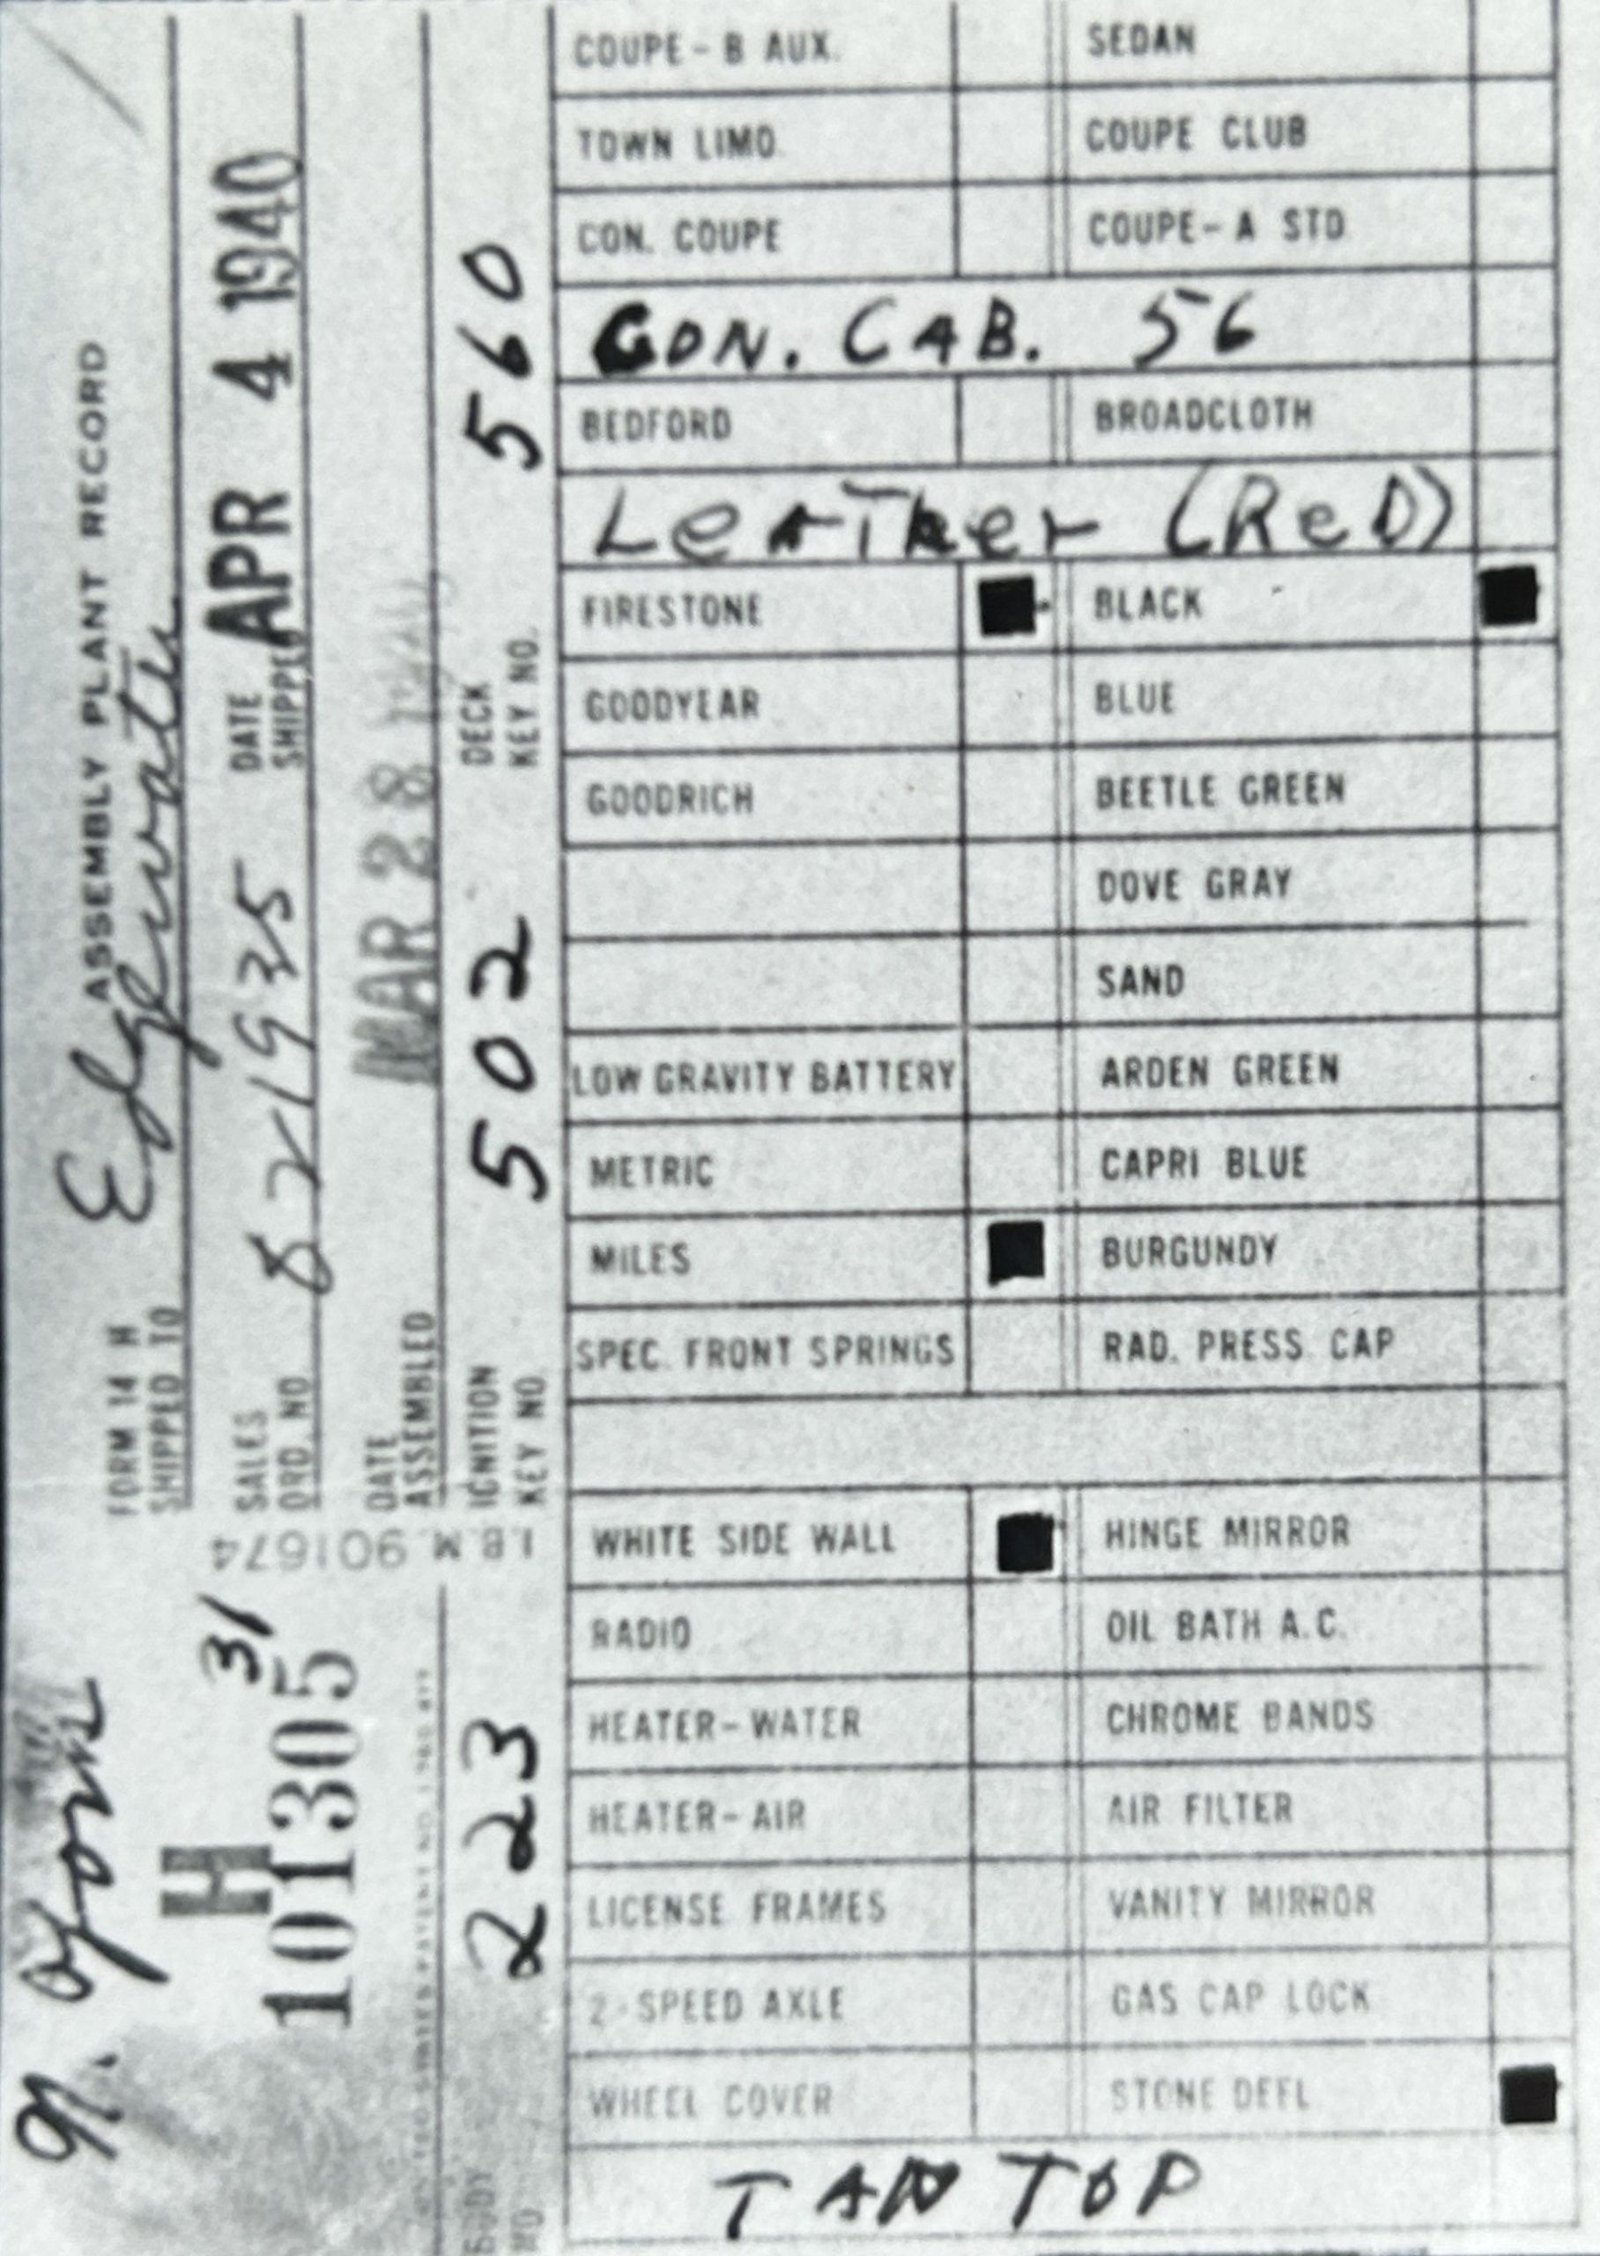 N. York
H 31
101305
I.B.M. 901674
FORM 14 H ASSEMBLY PLANT RECORD
SHIPPED TO Edgewater
SALES ORD. NO. 8-21935 DATE SHIPPED APR 4 1940
DATE ASSEMBLED MAR 28 1940
BODY NO. 223 IGNITION KEY NO. 502 DECK KEY NO. 560
COUPE-B AUX. SEDAN
TOWN LIMO. COUPE CLUB
CON. COUPE COUPE-A STD.
CON. CAB. 56
BEDFORD BROADCLOTH
LeATher (ReD)
FIRESTONE ■ BLACK ■
GOODYEAR BLUE
GOODRICH BEETLE GREEN
DOVE GRAY
SAND
LOW GRAVITY BATTERY ARDEN GREEN
METRIC CAPRI BLUE
MILES ■ BURGUNDY
SPEC. FRONT SPRINGS RAD. PRESS. CAP
WHITE SIDE WALL ■ HINGE MIRROR
RADIO OIL BATH A.C.
HEATER-WATER CHROME BANDS
HEATER-AIR AIR FILTER
LICENSE FRAMES VANITY MIRROR
2-SPEED AXLE GAS CAP LOCK
WHEEL COVER STONE DEFL ■
TAN TOP